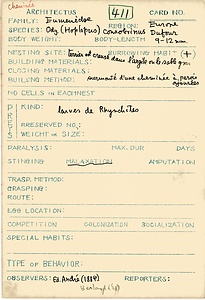 cheminée
ARCHITECTUS 411 CARD NO.
FAMILY: Eumenidae REGION: Europe
SPECIES: Ody (Hoplopus) Dufour
BODY WEIGHT: BODY-LENGTH: 9-12 mm
NESTING SITE: BURROWING HABIT (+)
BUILDING MATERIALS:
CLOSING MATERIALS:
BUILDING METHOD: surmonté d'une cheminée à parois
NO CELLS IN EACH NEST
PREYS KIND: larves de Rhynchites
PRESERVED NO.:
WEIGHT OR SIZE:
PARALYSIS: MAX. DUR DAYS
STINGING MALAXATION AMPUTATION
TRASP. METHOD:
GRASPING:
ROUTE:
EGG LOCATION:
COMPETITION COLONIZATION SOCIALIZATION
SPECIAL HABITS:
TYPE OF BEHAVIOR:
OBSERVERS: Ed. André (1884) REPORTERS: